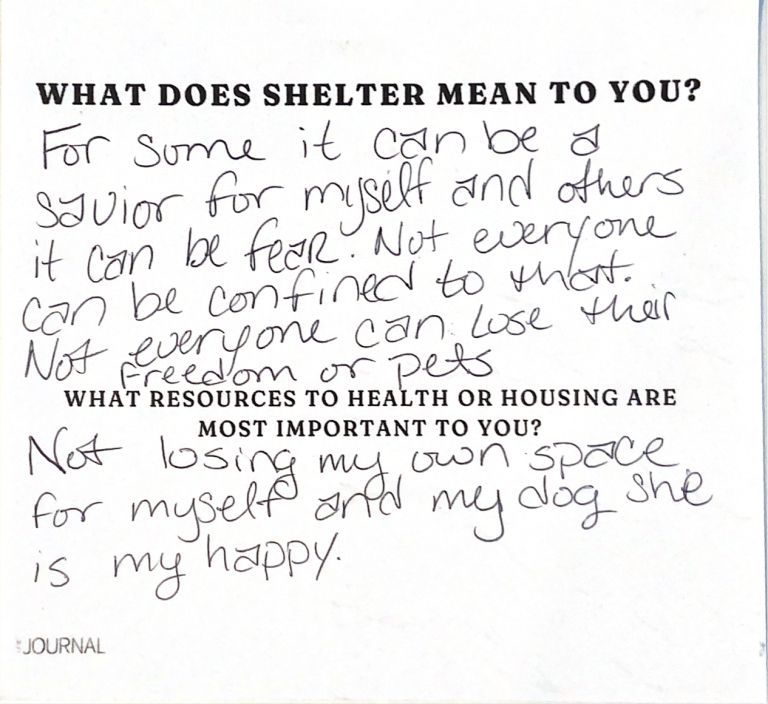 WHAT DOES SHELTER MEAN TO YOU?
For some it can be a
savior for myself and others
it can be fear. Not everyone
can be confined to that.
Not everyone can lose their
freedom or pets
WHAT RESOURCES TO HEALTH OR HOUSING ARE
MOST IMPORTANT TO YOU?
Not losing my own space
for myself and my dog she
is my happy.
JOURNAL